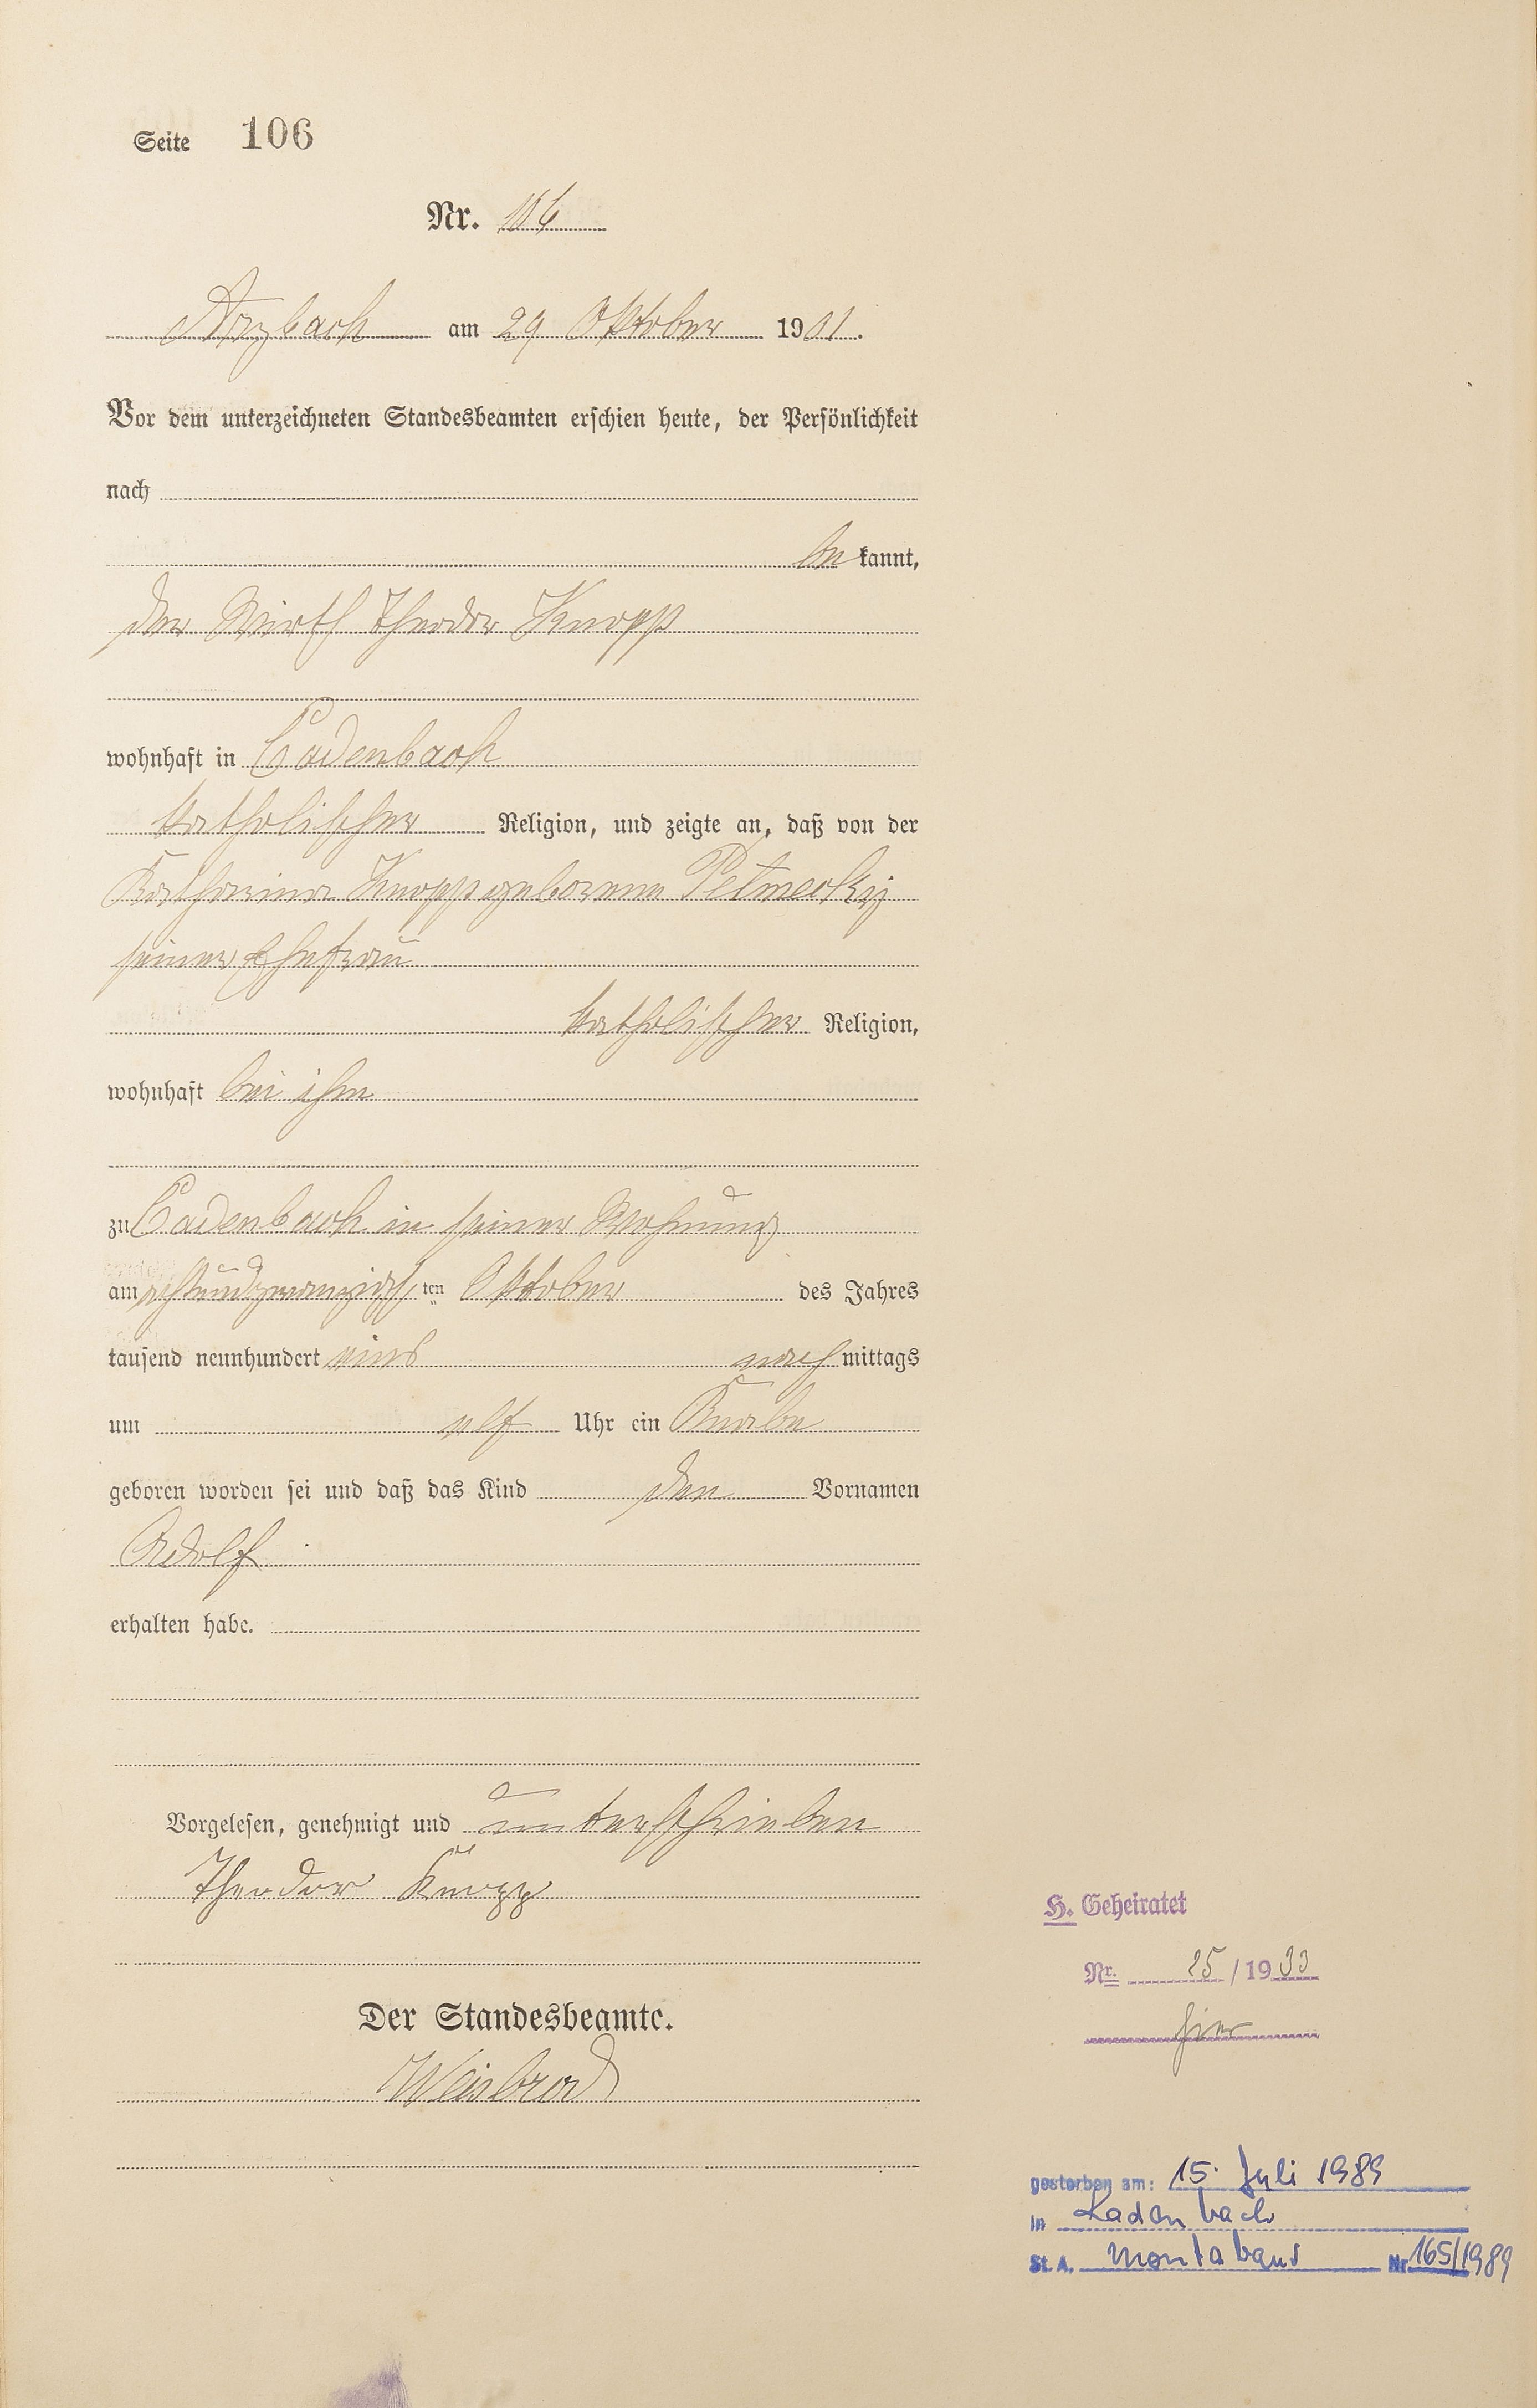 Seite 106
Nr. 106
Arzbach am 29 Oktober 1901.
Vor dem unterzeichneten Standesbeamten erschien heute, der Persönlichkeit
nach
be kannt,
der Wirth Theodor Knopp
wohnhaft in Cadenbach
katholischer Religion, und zeigte an, daß von der
Katharina Knopp geborenen Petmecky
seiner Ehefrau
katholischer Religion,
wohnhaft bei ihm
zu Cadenbach in seiner Wohnung
am achtundzwanzigsten Oktober des Jahres
tausend neunhundert eins nach mittags
um elf Uhr ein Knabe
geboren worden sei und daß das Kind den Vornamen
Adolf
erhalten habe.
Vorgelesen, genehmigt und unterschrieben
Theodor Knopp
H. Geheiratet
Nr. 25/1933
hier
Der Standesbeamte.
Weisbrod
gestorben am: 15. Juli 1989
in Kadenbach
St. A. Montabaur Nr. 165/1989